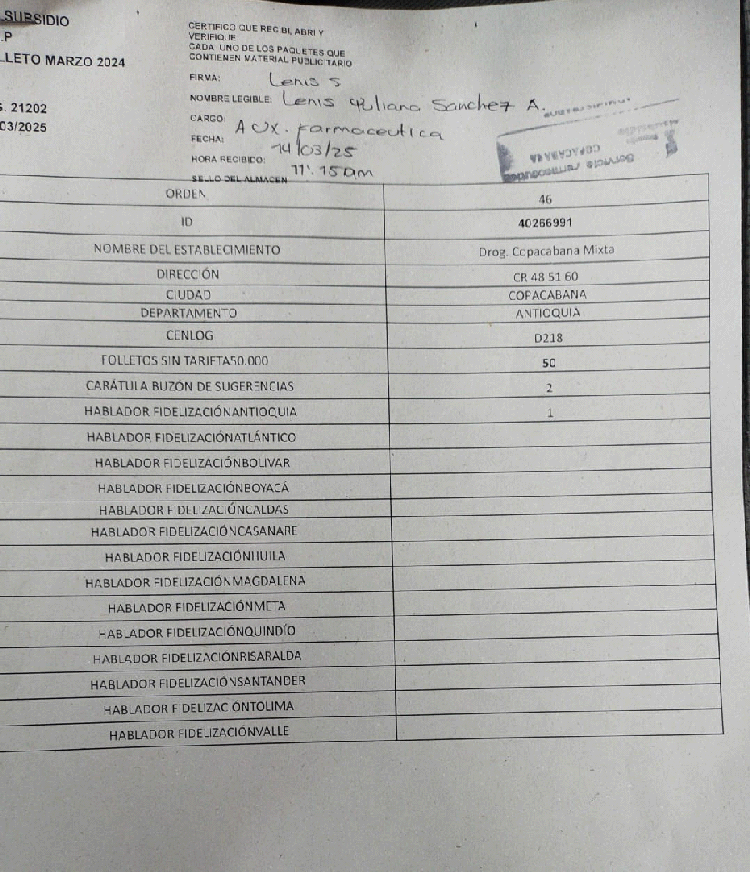 SUBSIDIO
.P
LLETO MARZO 2024
S. 21202
03/2025
CERTIFICO QUE RECIBI, ABRI Y
VERIFIQUE
CADA UNO DE LOS PAQUETES QUE
CONTIENEN MATERIAL PUBLICITARIO
FIRMA: Lenis S
NOMBRE LEGIBLE: Lenis Yuliana Sanchez A.
CARGO: Aux. farmaceutica
FECHA: 14/03/25
HORA RECIBIDO: 11:15am
SELLO DEL ALMACEN
COPACABANA
ORDEN 46
ID 40266991
NOMBRE DEL ESTABLECIMIENTO Drog. Copacabana Mixta
DIRECCIÓN CR 48 51 60
CIUDAD COPACABANA
DEPARTAMENTO ANTIOQUIA
CENLOG D218
FOLLETOS SIN TARIFTA50.000 50
CARÁTULA BUZÓN DE SUGERENCIAS 2
HABLADOR FIDELIZACIÓNANTIOQUIA 1
HABLADOR FIDELIZACIÓNATLÁNTICO
HABLADOR FIDELIZACIÓNBOLIVAR
HABLADOR FIDELIZACIÓNBOYACÁ
HABLADOR FIDELIZACIÓNCALDAS
HABLADOR FIDELIZACIÓNCASANARE
HABLADOR FIDELIZACIÓNHUILA
HABLADOR FIDELIZACIÓNMAGDALENA
HABLADOR FIDELIZACIÓNMETA
HABLADOR FIDELIZACIÓNQUINDÍO
HABLADOR FIDELIZACIÓNRISARALDA
HABLADOR FIDELIZACIÓNSANTANDER
HABLADOR FIDELIZACIÓNTOLIMA
HABLADOR FIDELIZACIÓNVALLE